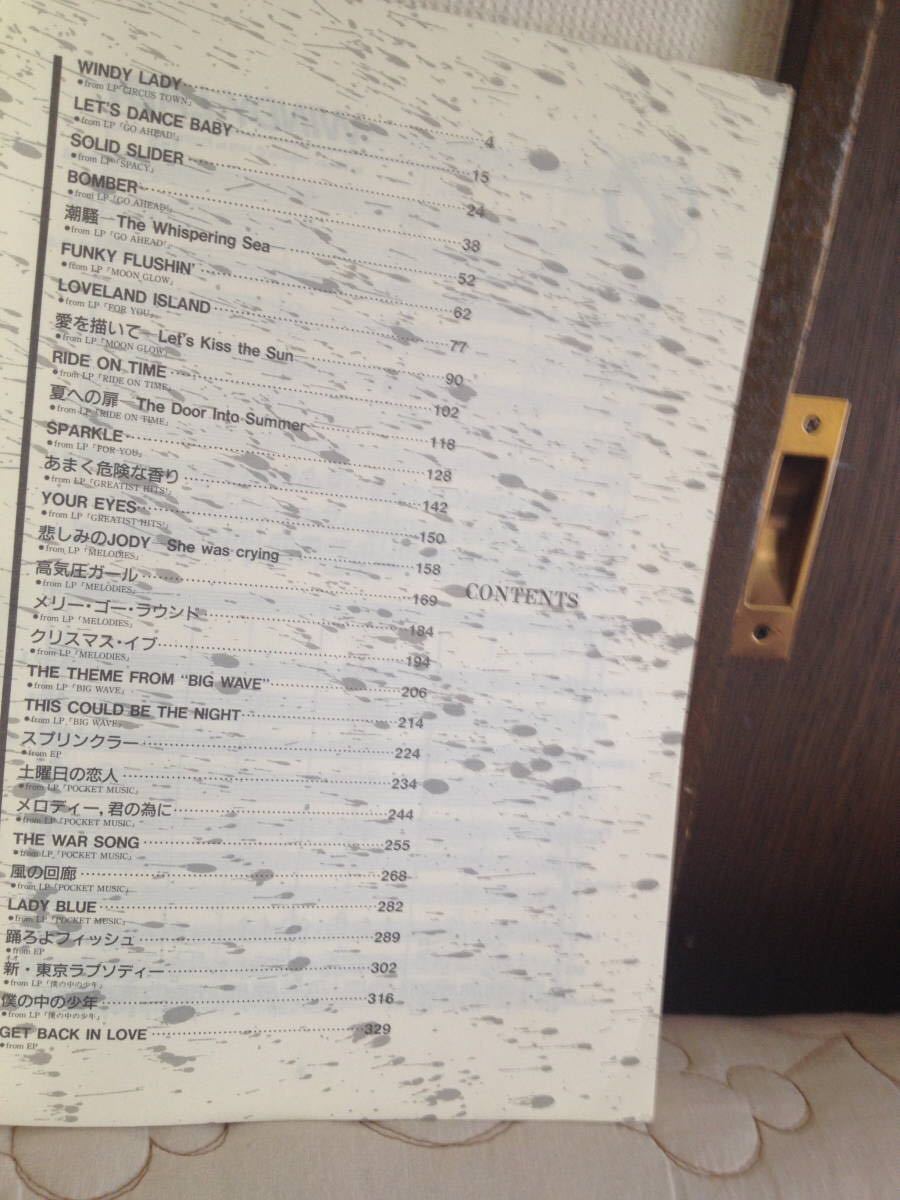 WINDY LADY 4
●from LP「CIRCUS TOWN」
LET'S DANCE BABY 15
●from LP「GO AHEAD!」
SOLID SLIDER 24
●from LP「SPACY」
BOMBER 38
●from LP「GO AHEAD!」
潮騒—The Whispering Sea 52
●from LP「GO AHEAD!」
FUNKY FLUSHIN' 62
●from LP「MOON GLOW」
LOVELAND ISLAND 77
●from LP「FOR YOU」
愛を描いて—Let's Kiss the Sun 90
●from LP「MOON GLOW」
RIDE ON TIME 102
●from LP「RIDE ON TIME」
夏への扉—The Door Into Summer 118
●from LP「RIDE ON TIME」
SPARKLE 128
●from LP「FOR YOU」
あまく危険な香り 142
●from LP「GREATIST HITS!」
YOUR EYES 150
●from LP「GREATIST HITS!」
悲しみのJODY—She was crying 158
●from LP「MELODIES」
高気圧ガール 169
●from LP「MELODIES」
メリー・ゴー・ラウンド 184
●from LP「MELODIES」
クリスマス・イブ 194
●from LP「MELODIES」
THE THEME FROM "BIG WAVE" 206
●from LP「BIG WAVE」
THIS COULD BE THE NIGHT 214
●from LP「BIG WAVE」
スプリンクラー 224
●from EP
土曜日の恋人 234
●from LP「POCKET MUSIC」
メロディー,君の為に 244
●from LP「POCKET MUSIC」
THE WAR SONG 255
●from LP「POCKET MUSIC」
風の回廊 268
●from LP「POCKET MUSIC」
LADY BLUE 282
●from LP「POCKET MUSIC」
踊ろよフィッシュ 289
●from EP
新・東京ラプソディー 302
●from LP「僕の中の少年」
僕の中の少年 316
●from LP「僕の中の少年」
GET BACK IN LOVE 329
●from EP
CONTENTS